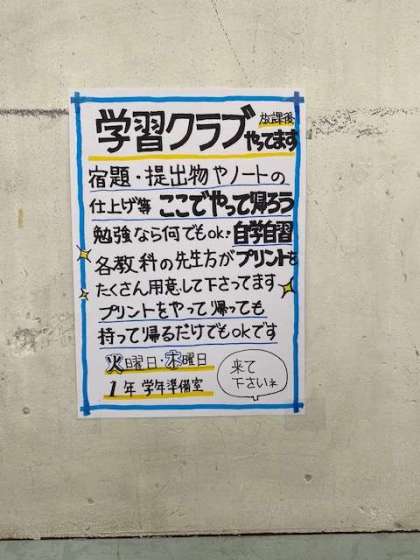 学習クラブ 放課後 やってます
宿題・提出物やノートの
仕上げ等 ここでやって帰ろう
勉強なら何でもok! 自学自習
各教科の先生方がプリントを
たくさん用意して下さってます
プリントをやって帰っても
持って帰るだけでもokです
火曜日・木曜日
1年 学年準備室
来て
下さいネ